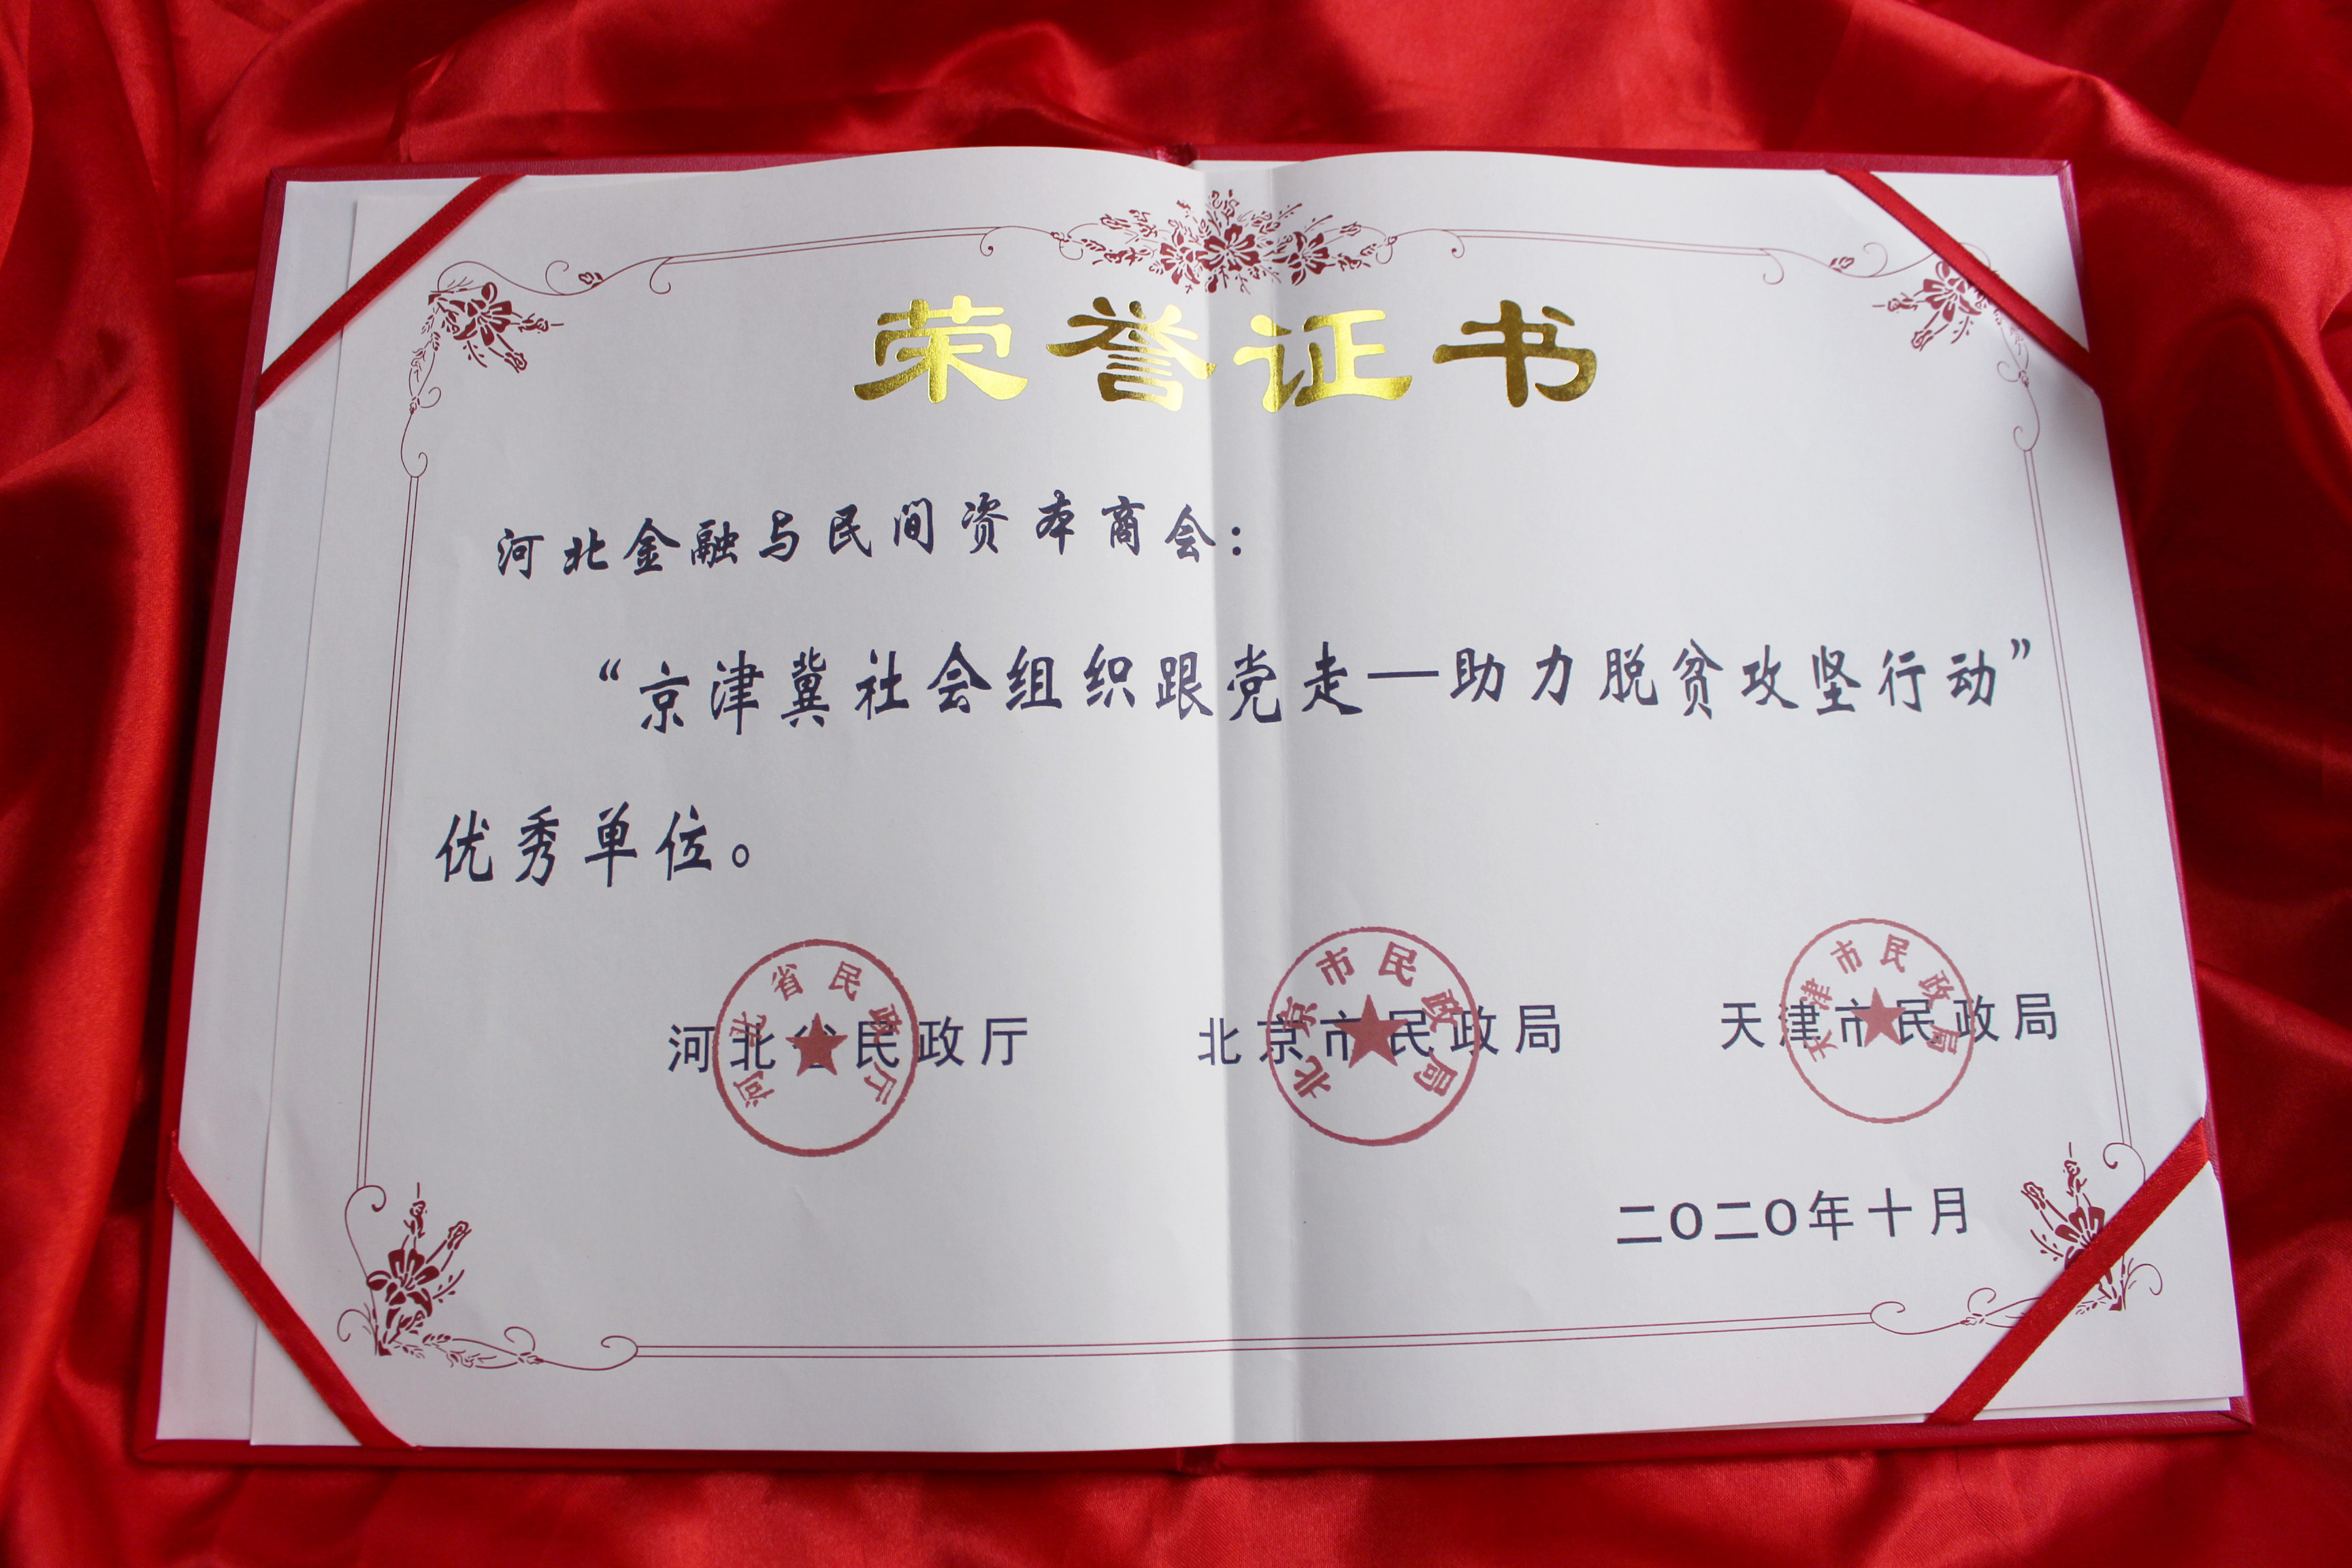 荣誉证书
河北金融与民间资本商会：
“京津冀社会组织跟党走—助力脱贫攻坚行动”
优秀单位。
河北省民政厅 北京市民政局 天津市民政局
河北省民政厅
北京市民政局
天津市民政局
二〇二〇年十月